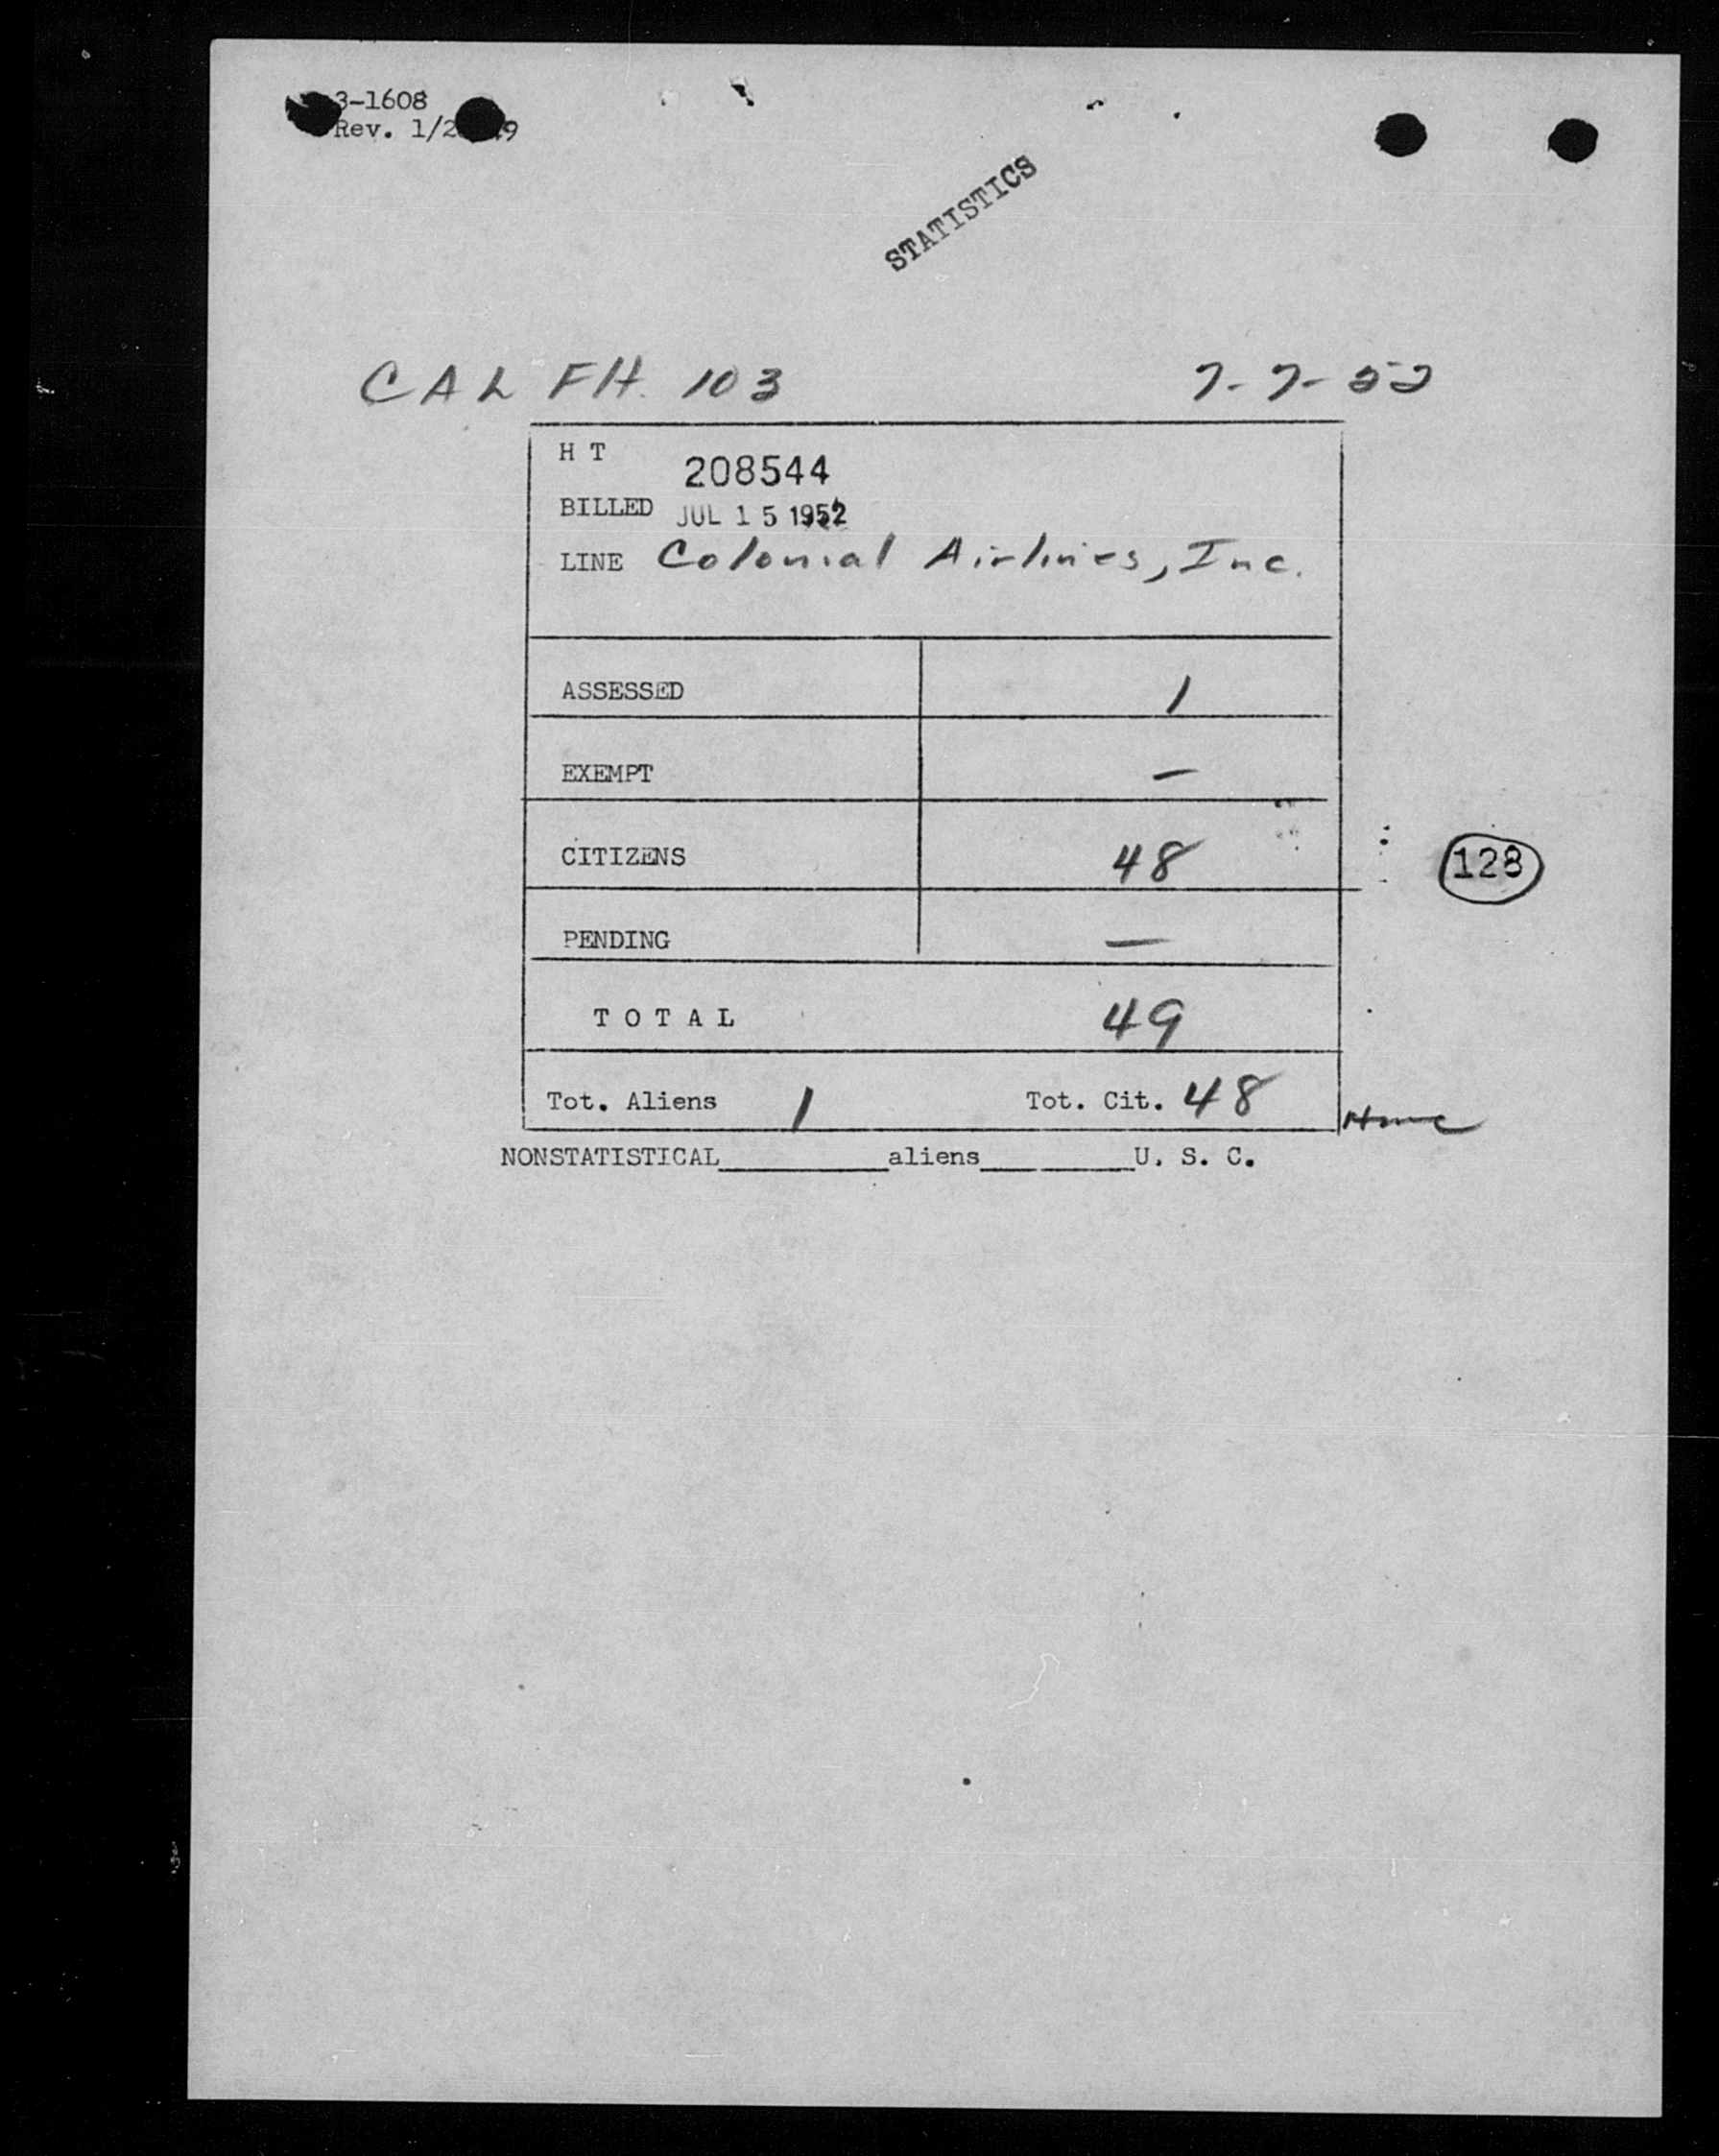 3-1608
Rev. 1/2 9
STATISTICS
CAL Flt. 103 7-7-52
H T 208544
BILLED JUL 15 1952
LINE Colonial Airlines, Inc.
ASSESSED 1
EXEMPT —
CITIZENS 48
128
PENDING —
TOTAL 49
Tot. Aliens 1 Tot. Cit. 48
NONSTATISTICAL__________aliens__________U. S. C.